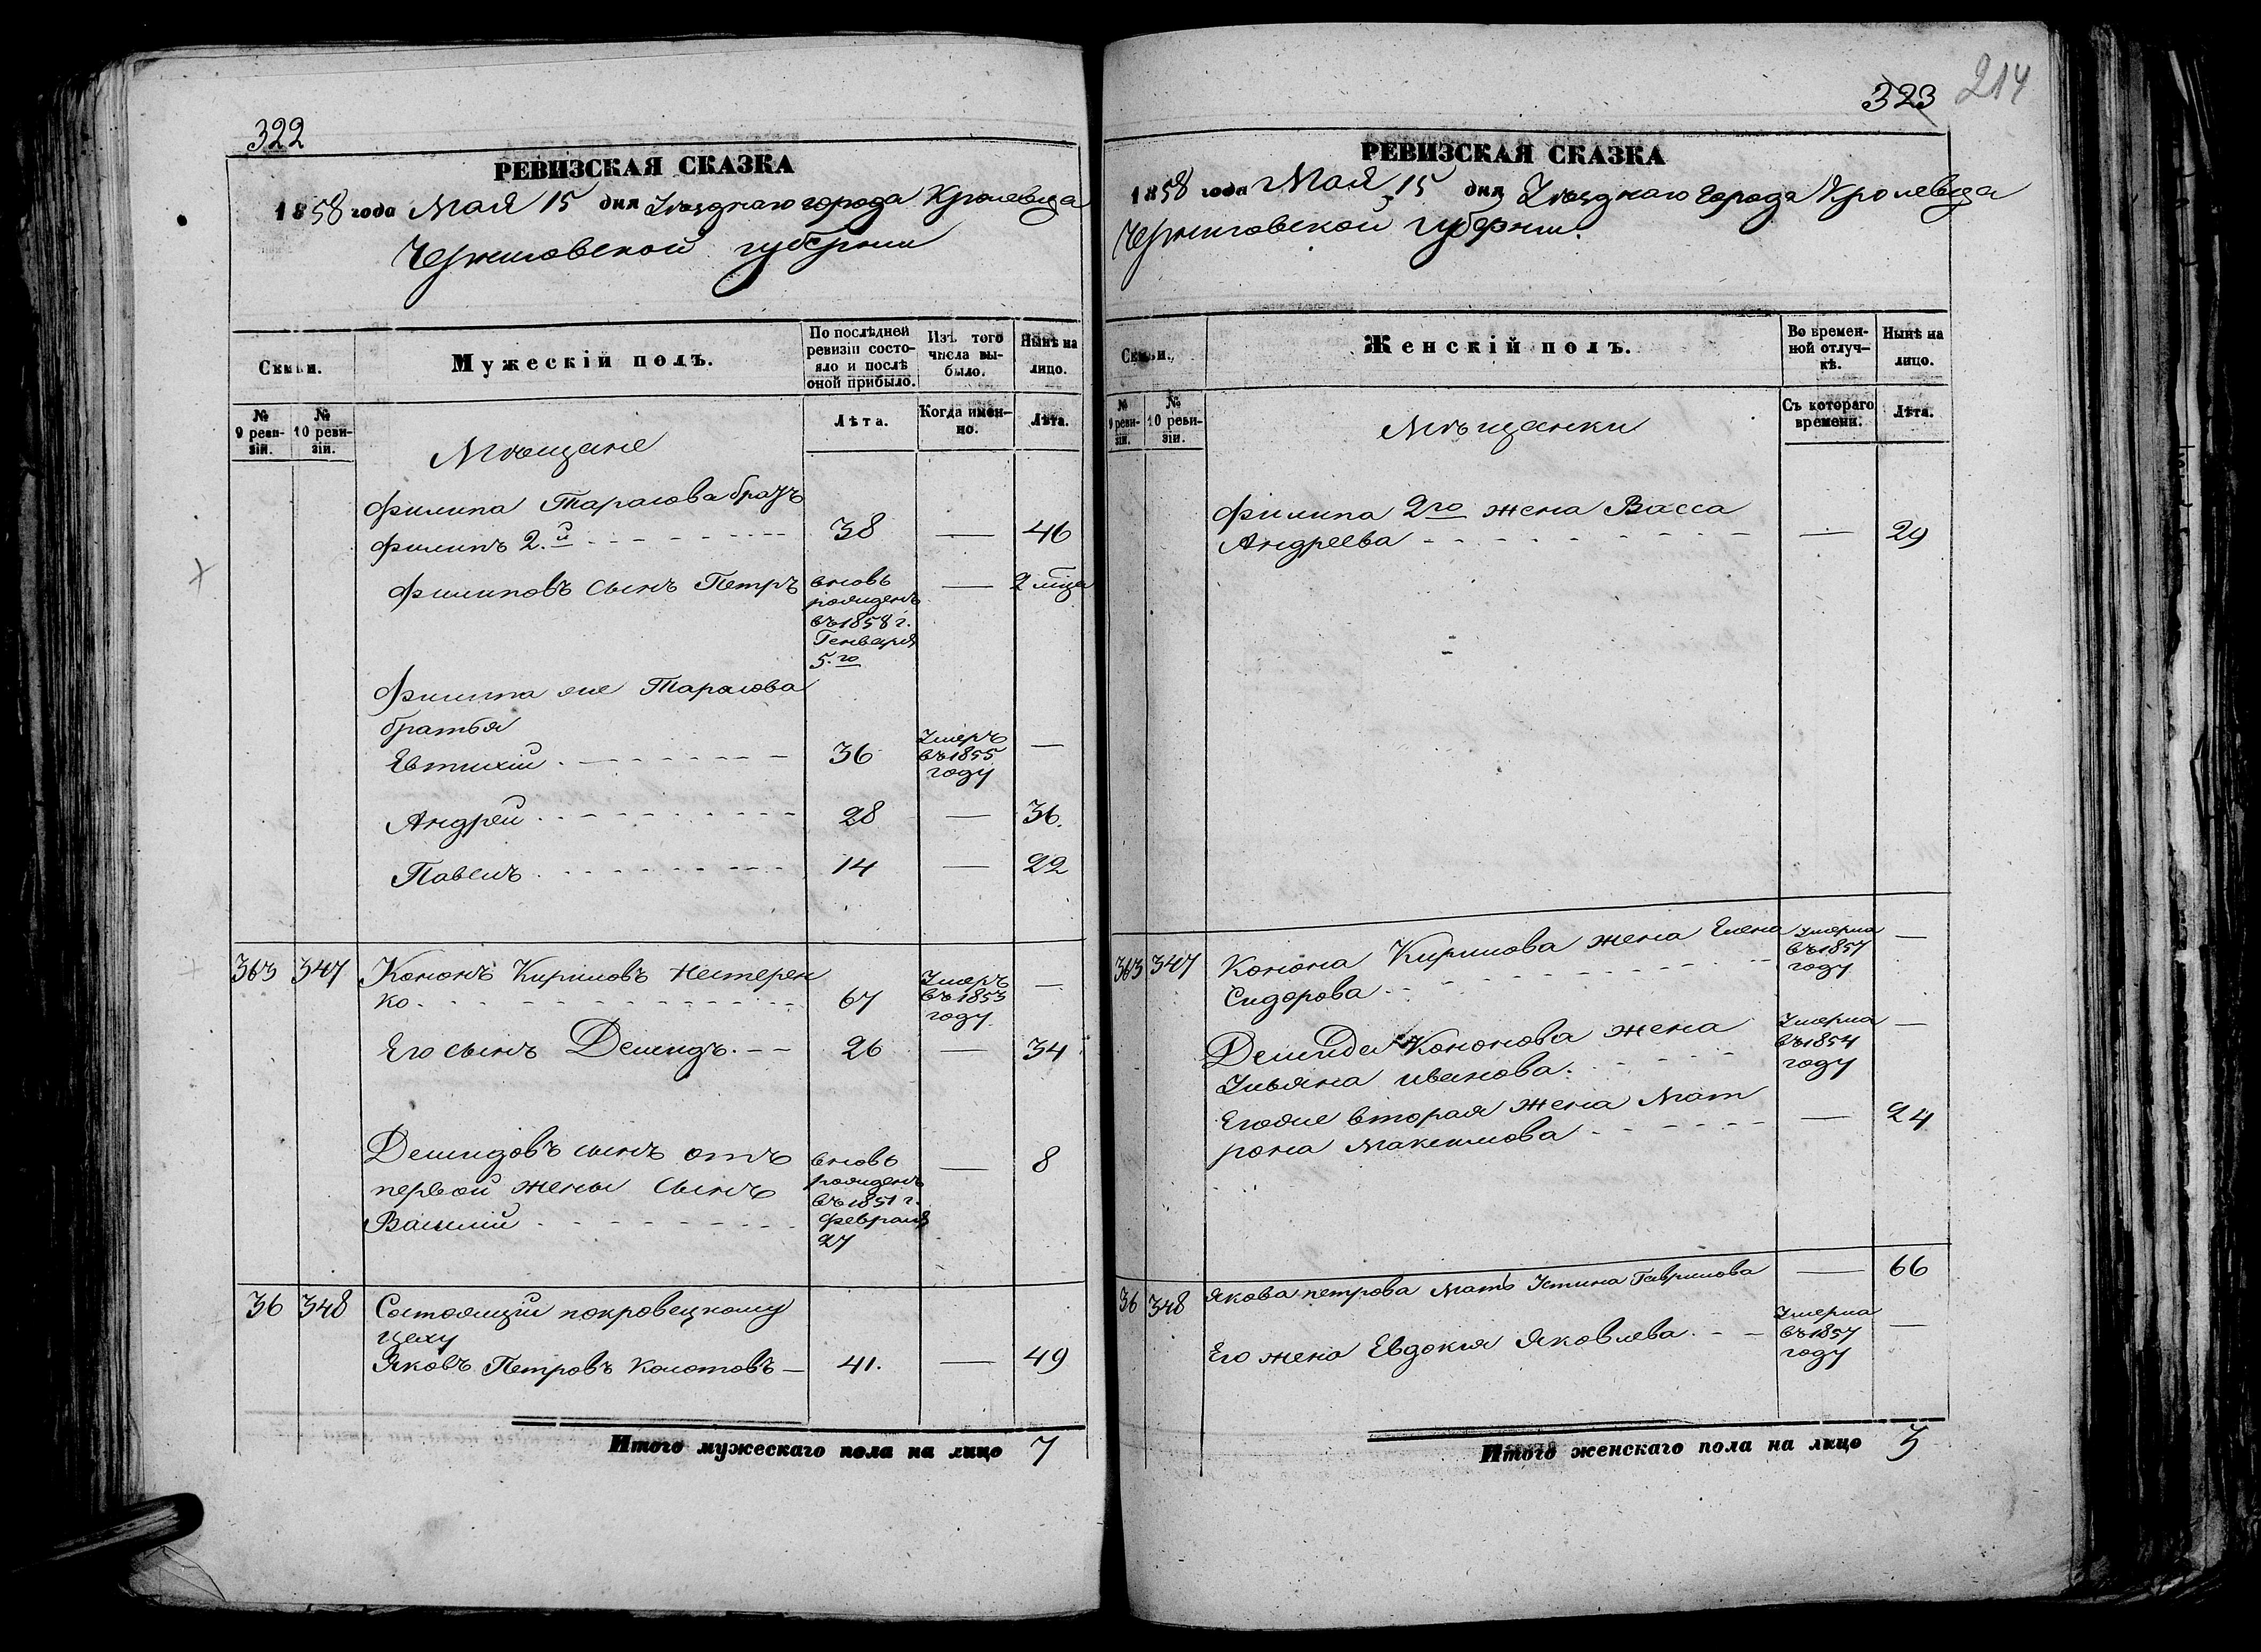 322
РЕВИЗСКАЯ СКАЗКА
1858 года Мая 15 дня Уѣзднаго города Кролевца
Черниговской губерніи
Семьи.
Мужескій полъ.
По послѣдней ревизіи состояло и послѣ оной прибыло.
Изъ того числа выбыло.
Нынѣ на лицо.
№ 9 ревизіи.
№ 10 ревизіи.
Лѣта.
Когда именно.
Лѣта.
Мѣщане
Филипа Тарасова братъ
Филипъ 2.й 38 — 46
Филиповъ сынъ Петръ вновь рожденъ въ 1858 г. Генваря 5.го — 2 мѣца
Филипа же Тарасова
братья
Евтихій 36 Умеръ въ 1855 году —
Андрей 28 — 36.
Павелъ 14 — 22
363 347 Кононъ Кириловъ Нестерен
ко 67 Умеръ въ 1853 году —
Его сынъ Демидъ 26 — 34
Демидовъ сынъ отъ
первой жены сынъ
Василій вновь рожденъ въ 1851 г. Февраля 27 — 8
36 348 Состоящій покровецкому
цеху
Яковъ Петровъ Колотовъ — 41. — 49
Итого мужескаго пола на лицо 7
323 214
РЕВИЗСКАЯ СКАЗКА
1858 года Мая 15 дня Уѣзднаго города Кролевца
Черниговской губерніи.
Семьи.
Женскій полъ.
Во временной отлучкѣ.
Нынѣ на лицо.
№ 9 ревизіи.
№ 10 ревизіи.
Съ котораго времени.
Лѣта.
Мѣщанки
Филипа 2го жена Васса
Андреева — 29
363 347 Конона Кирилова жена Елена
Сидорова Умерла въ 1857 году —
Демида Кононова жена
Ульяна иванова. Умерла въ 1854 году —
Егоже вторая жена Мат
рона Максимова — 24
36 348 Якова петрова мать Устина Гаврилова — 66
Его жена Евдокия Яковлева. Умерла въ 1857 году —
Итого женскаго пола на лицо 3